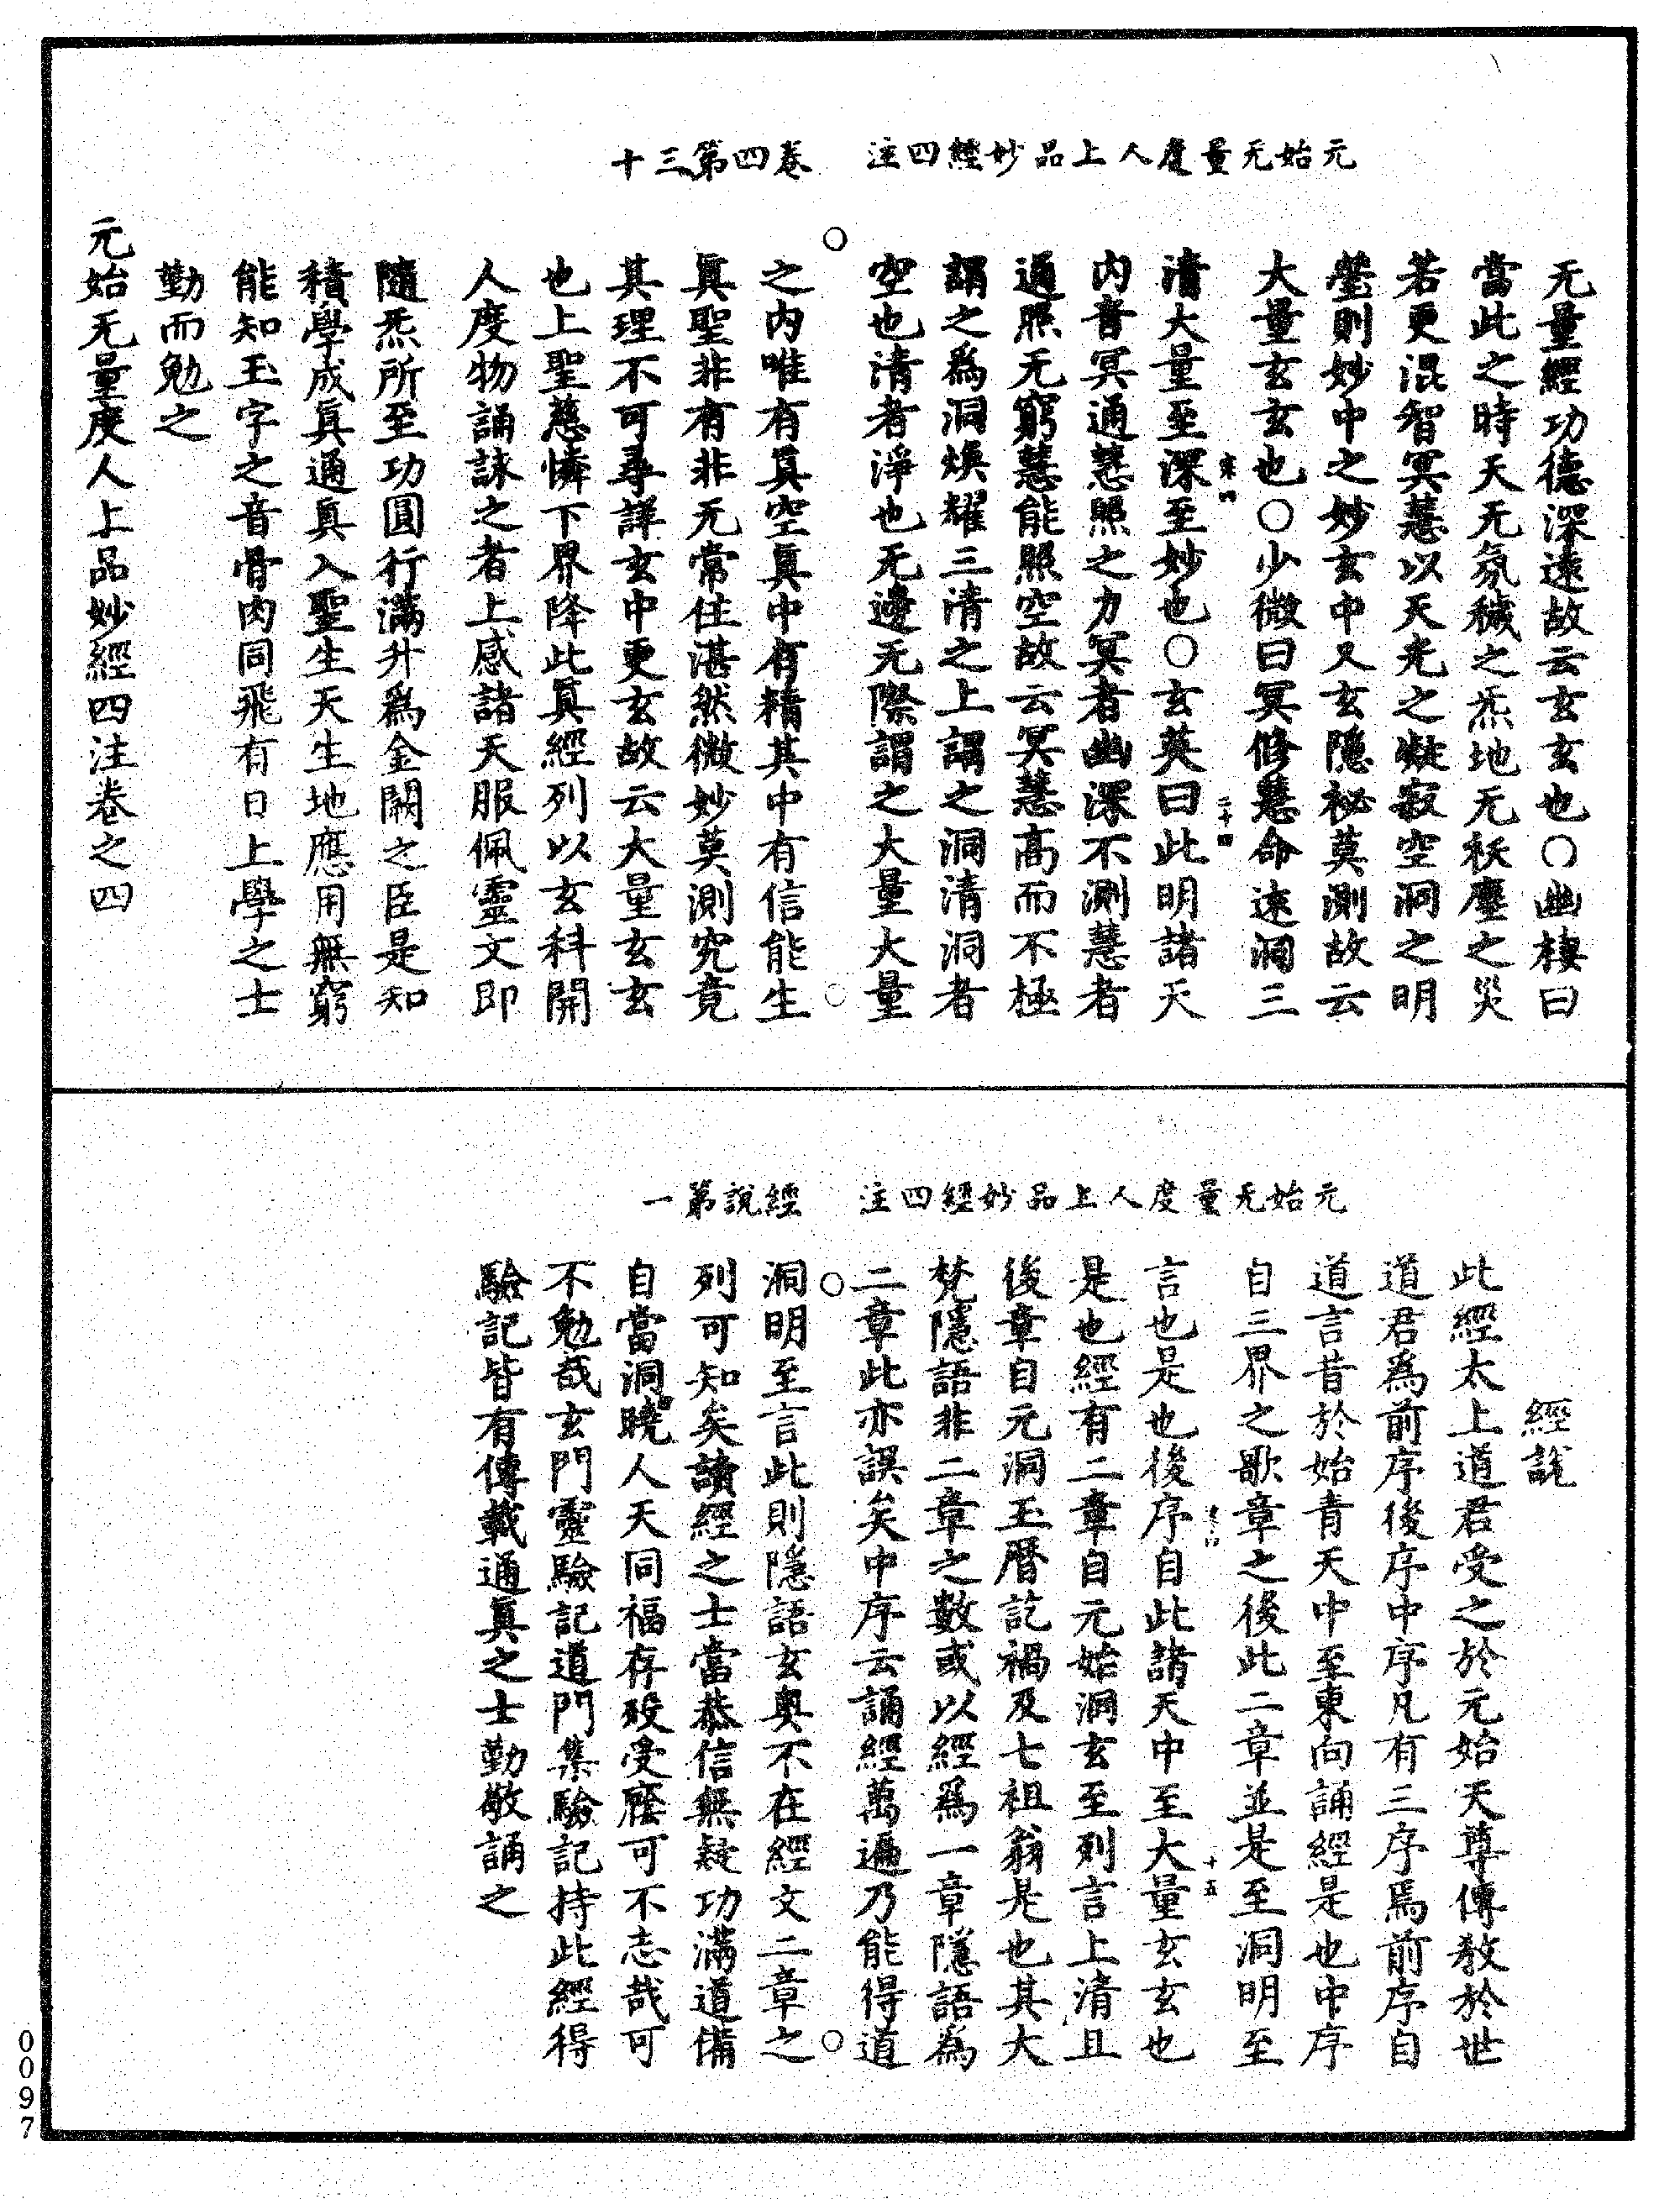 元始无量度人上品妙經四注　卷四第三十
无量經功德深遠故云玄玄也○幽棲曰
當此之時天无氛穢之炁地无秡塵之災
若更混智冥慧以天光之凝寂空洞之明
瑩則妙中之妙玄中又玄隱祕莫測故云
大量玄玄也○少微曰冥修慧命速洞三
清大量至深至妙也○玄英曰此明諸天
內音冥通慧照之力冥者幽深不測慧者
通照无窮慧能照空故云冥慧高而不極
謂之爲洞煥耀三清之上謂之洞清洞者
空也清者淨也无邊无際謂之大量大量
之內唯有眞空眞中有精其中有信能生
眞聖非有非无常住湛然微妙莫測究竟
其理不可尋詳玄中更玄故云大量玄玄
也上聖慈憐下界降此眞經列以玄科開
人度物誦詠之者上感諸天服佩靈文即
隨炁所至功圓行滿升爲金闕之臣是知
積學成眞通眞入聖生天生地應用無窮
能知玉字之音骨肉同飛有日上學之士
勤而勉之
元始无量度人上品妙經四注卷之四
二十四
元始无量度人上品妙經四注　經說第一
經說
此經太上道君受之於元始天尊傳教於世
道君爲前序後序中序凡有三序焉前序自
道言昔於始青天中至東向誦經是也中序
自三界之歌章之後此二章並是至洞明至
言也是也後序自此諸天中至大量玄玄也
是也經有二章自元始洞玄至列言上清且
後章自元洞玉曆訖禍及七祖翁是也其大
梵隱語非二章之數或以經爲一章隱語為
二章此亦誤矣中序云誦經萬遍乃能得道
洞明至言此則隱語玄奥不在經文二章之
列可知矣讀經之士當恭信無疑功滿道備
自當洞曉人天同福存歿受廕可不志哉可
不勉哉玄門靈驗記道門集驗記持此經得
驗記皆有傳載通眞之士勤敬誦之
十五
0097